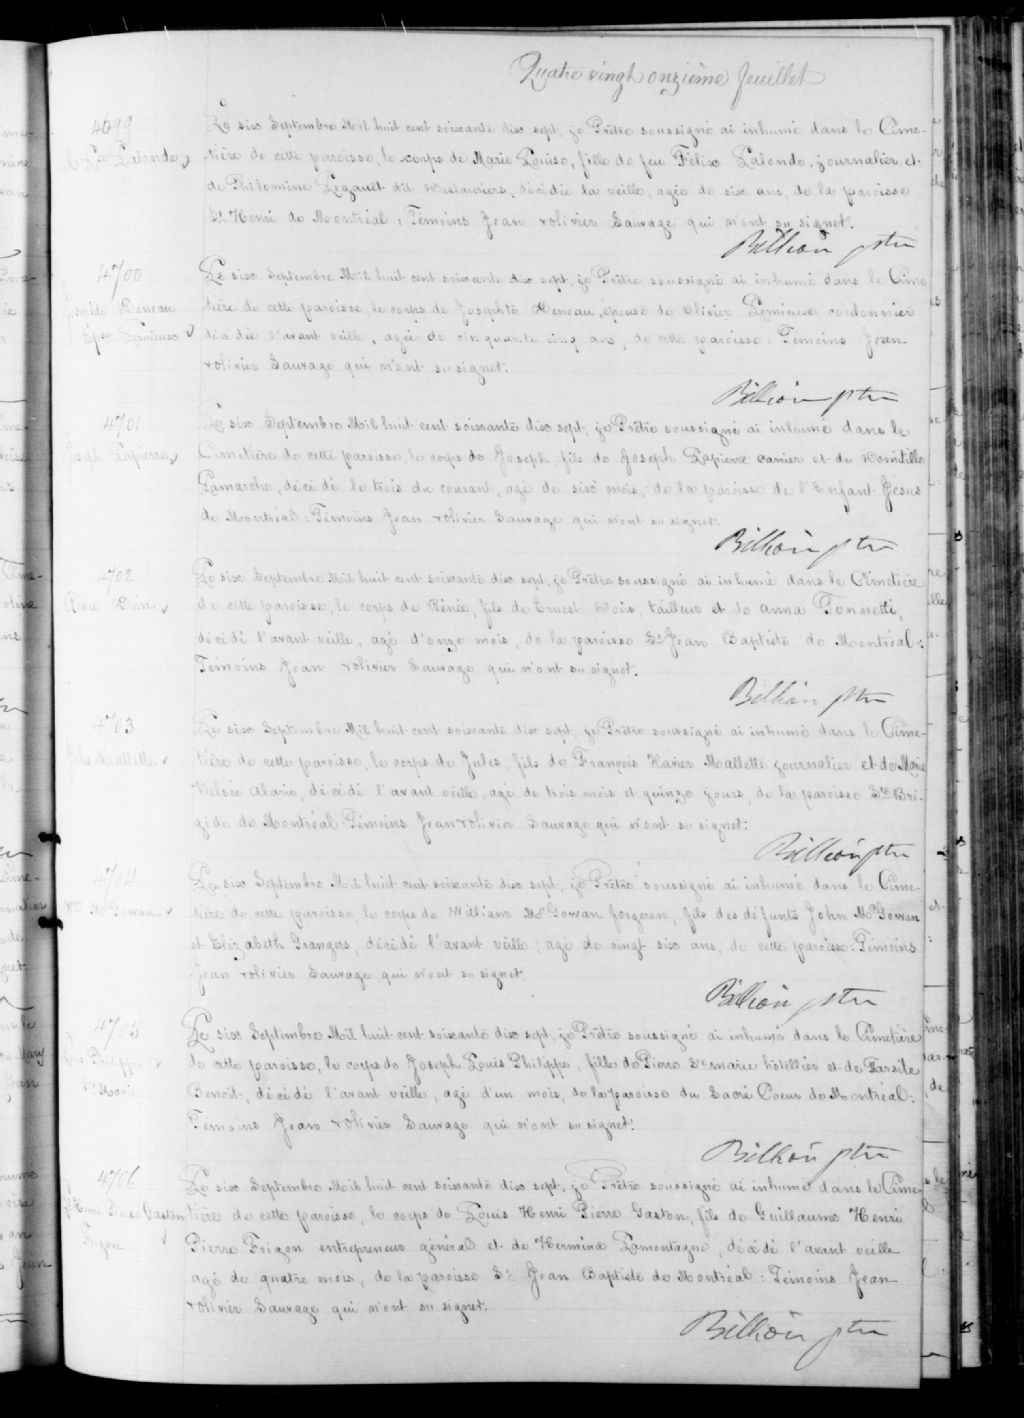 Quatre vingt onzième feuillet
4699
M. Lse Lalonde
Le six Septembre Mil huit cent soixante dix sept, je Prêtre soussigné ai inhumé dans le Cime-
tière de cette paroisse, le corps de Marie Louise, fille de feu Félix Lalonde, journalier et
de Philomine Legault dit Deslauriers, décédée la veille, agée de six ans, de la paroisse
St Henri de Montréal : Témoins Jean & olivier Sauvage qui n'ont su signer.
Billion ptre
4700
Josephte Deneau
Epse Lemieux
Le six Septembre Mil huit cent soixante dix sept, je Prêtre soussigné ai inhumé dans le Cime
tière de cette paroisse le corps de Josephte Deneau, épouse de Olivier Lemieux cordonnier
décédée l'avant veille, agée de cinquante cinq ans, de cette paroisse : Témoins Jean
& olivier Sauvage qui n'ont su signer.
Billion ptre
4701
Joseph Lapierre
Le six Septembre Mil huit cent soixante dix sept, je Prêtre soussigné ai inhumé dans le
Cimetière de cette paroisse, le corps de Joseph, fils de Joseph Lapierre carrier et de Domitille
Lamarche, décédé le trois du courant, agé de six mois, de la paroisse de l'Enfant Jésus
de Montréal : Témoins Jean & olivier Sauvage qui n'ont su signer.
Billion ptre
4702
Le six Septembre Mil huit cent soixante dix sept, je Prêtre soussigné ai inhumé dans le Cimetière
de cette paroisse, le corps de Rénée, fils de Ernest tailleur et de anna Tonnetti,
décédé l'avant veille, agé d'onze mois, de la paroisse St Jean Baptiste de Montréal :
Témoins Jean & olivier Sauvage qui n'ont su signer.
Billion ptre
4703
Jules Mallette
Le six Septembre Mil huit cent soixante dix sept, je Prêtre soussigné ai inhumé dans le Cime-
tière de cette paroisse, le corps de Jules, fils de François Xavier Mallette journalier et de Marie
Nelsée alarie, décédé l'avant veille, agé de trois mois et quinze jours, de la paroisse Ste Bri-
gide de Montréal : Témoins Jean & olivier Sauvage qui n'ont su signer.
Billion ptre
4704
Wm McGowan
Le six Septembre Mil huit cent soixante dix sept, je Prêtre soussigné ai inhumé dans le Cime-
tière de cette paroisse, le corps de William McGowan forgeron, fils des défunts John McGowan
et Elizabeth Grangers, décédé l'avant veille, agé de vingt six ans, de cette paroisse : Témoins
Jean & olivier Sauvage qui n'ont su signer.
Billion ptre
4705
Louis Philippe
Ste Marie
Le six Septembre Mil huit cent soixante dix sept, je Prêtre soussigné ai inhumé dans le Cimetière
de cette paroisse, le corps de Joseph Louis Philippe, fils de Pierre Ste marie hôtellier et de Tarsile
Benoit, décédé l'avant veille, agé d'un mois, de la paroisse du Sacré Coeur de Montréal :
Témoins Jean & Olivier Sauvage qui n'ont su signer.
Billion ptre
4706
Henri Pierre Gaston
Frigon
Le six Septembre Mil huit cent soixante dix sept, je Prêtre soussigné ai inhumé dans le Cime-
tière de cette paroisse, le corps de Louis Henri Pierre Gaston, fils de Guillaume Henri
Pierre Frigon entrepreneur général et de Hermine Lamontagne, décédé l'avant veille
agé de quatre mois, de la paroisse St Jean Baptiste de Montréal : Témoins Jean
& olivier Sauvage qui n'ont su signer.
Billion ptre